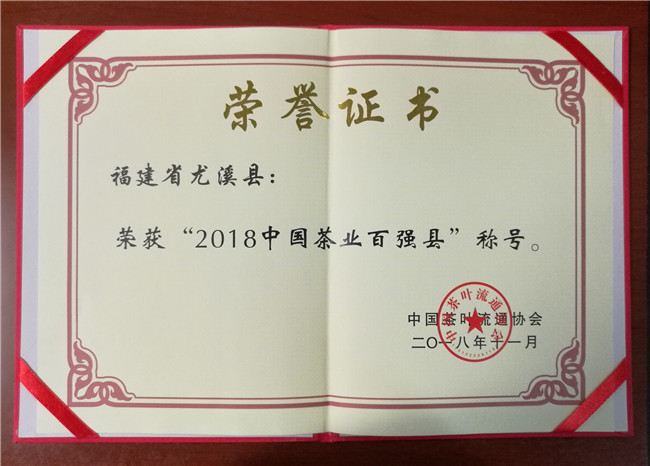 荣誉证书
福建省尤溪县：
荣获“2018中国茶业百强县”称号。
中国茶叶流通协会
二〇一八年十一月
中国茶叶流通协会